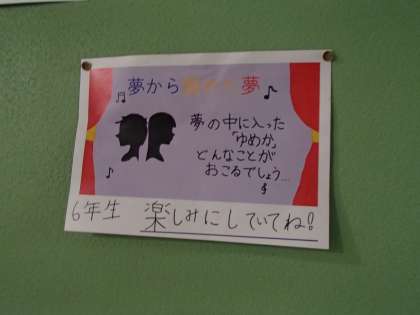 夢から覚めた夢
夢の中に入った
「ゆめか」
どんなことが
おこるでしょう…
6年生 楽しみにしていてね!